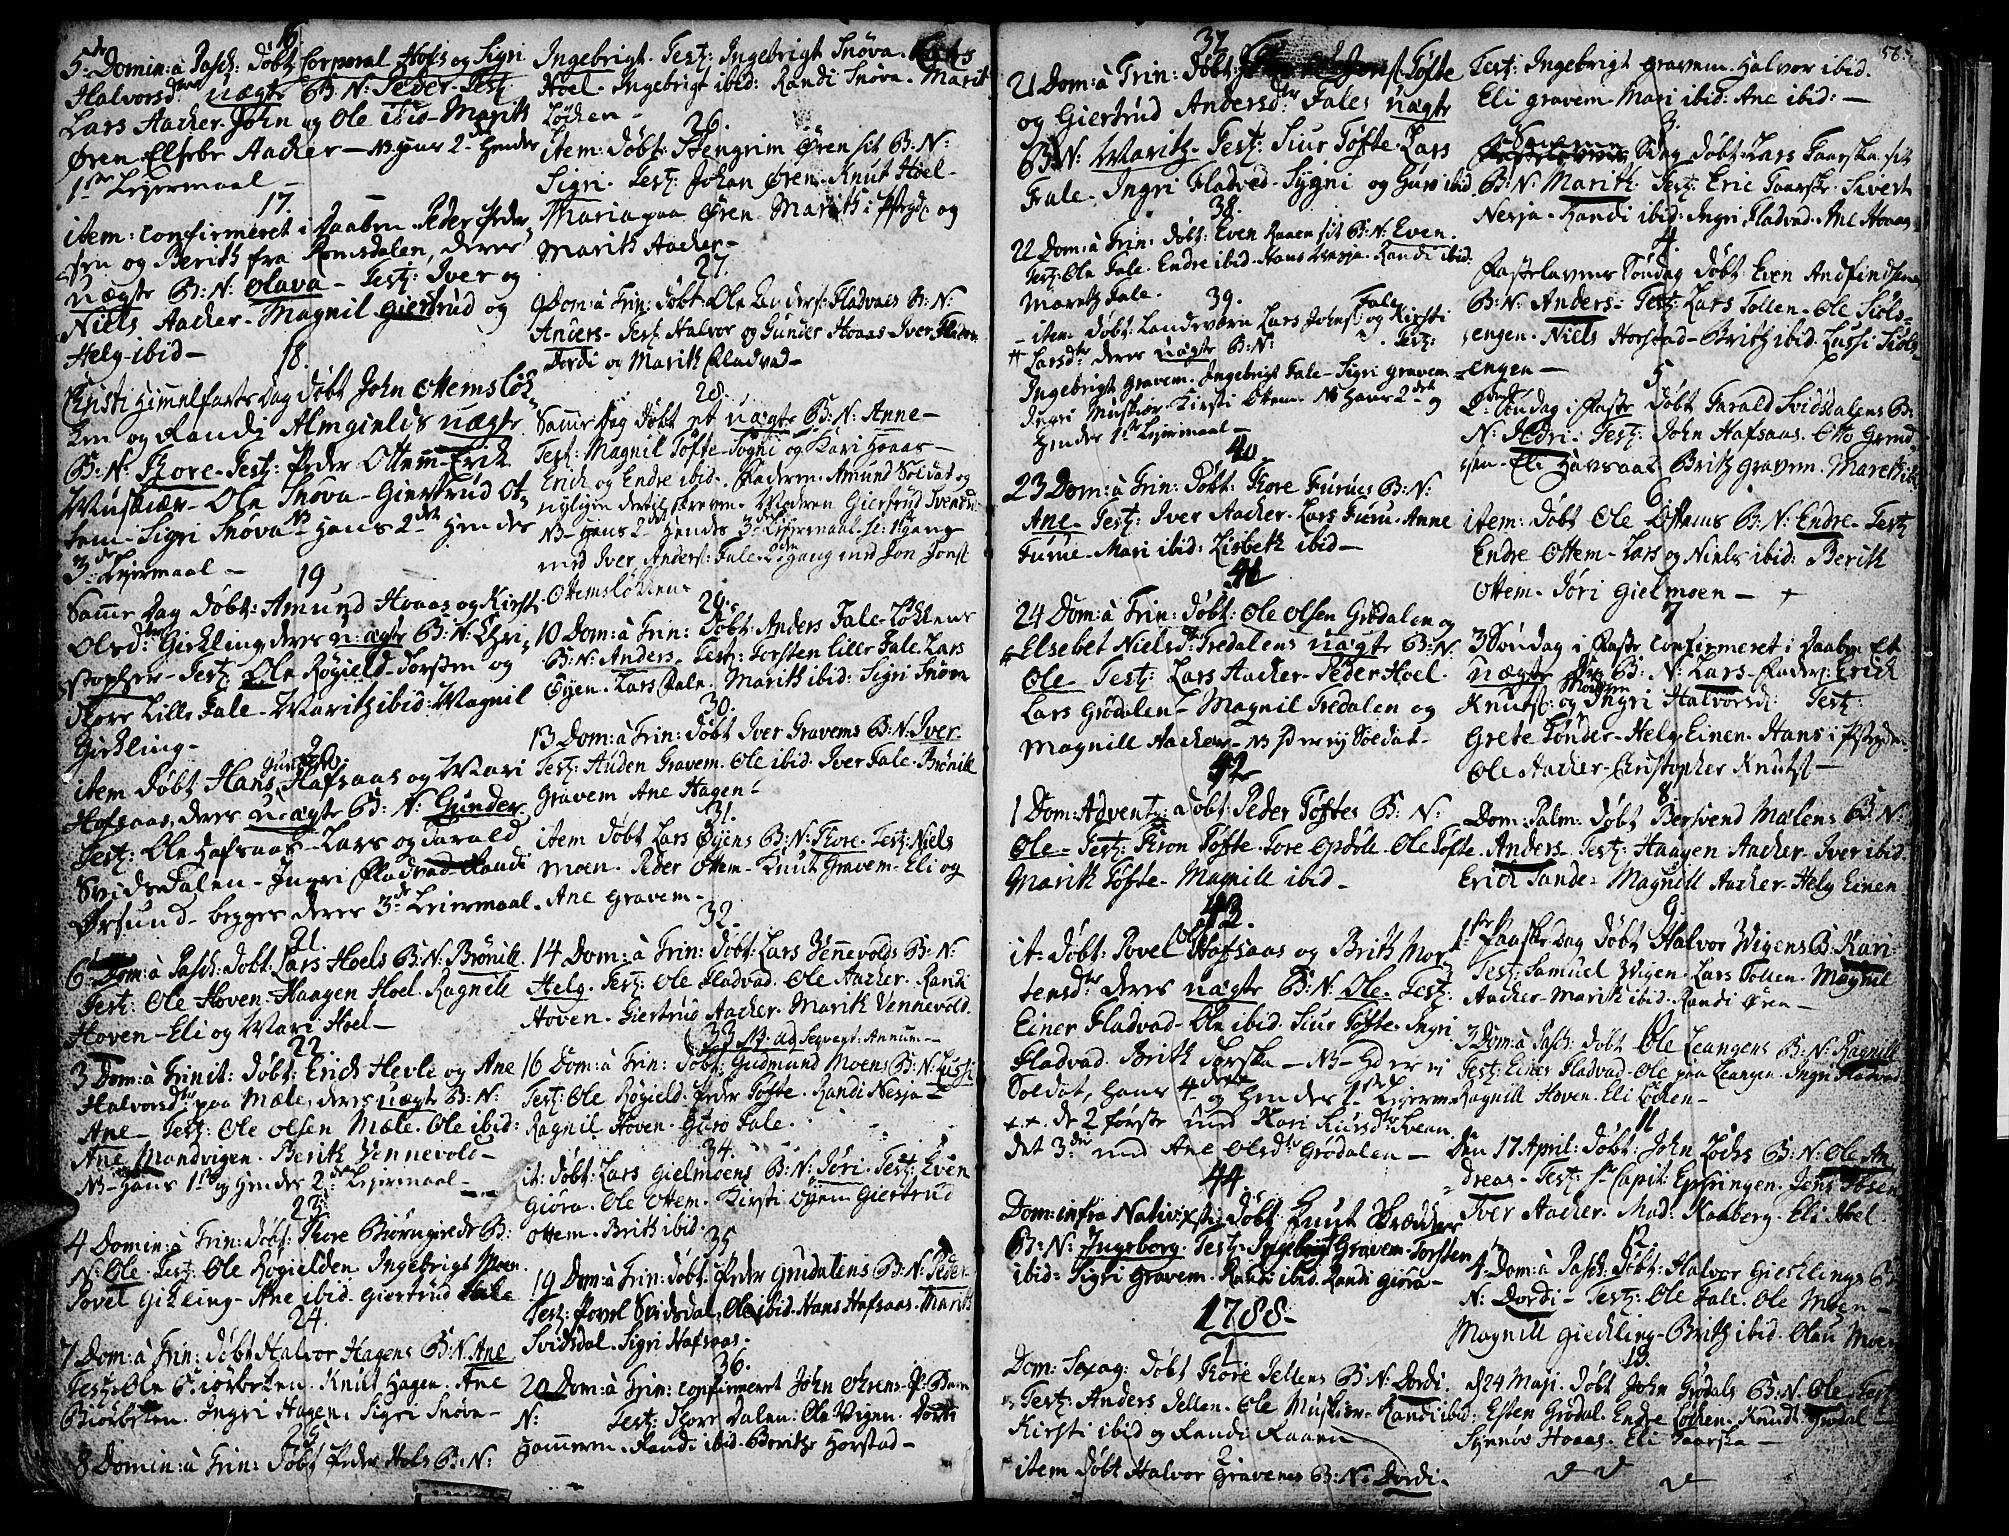 16.
5de Domin: à Pasch: døbt Corporal Hofs og Sigri
Halvorsdtr uægte B: N: Peder. Test:
Lars Aacher. John og Ole ibid. Marith
Øren Elsebe Aacher — NB hans 2de Hendes
1ste Lejermaal —
17.
item: confirmeret i Daaben Peder Peder-
sen og Berith fra Romsdalen, deres
uægte B: N: Olava — Test: Iver og
Niels Aacher. Magnil Giertrud og
Helg ibid —
18.
Christi Himmelfarts Dag døbt John Ottemsløk-
ken og Randi Almgields uægte
B: N: Thore. Test: Peder Ottem. Erich
Muskiær. Ole Snøva. Giertrud Ot-
tem. Sigri Snøva NB Hans 2det Hendes
3die Lejermaal —
19
Samme Dag døbt: Amund Hoaas og Kirsti
Olsdtr Gickling deres uægte B: N: Chri-
stopher. Test: Ole Røgield. Torsten og
Thore Lille Fale. Marith ibid: Magnil
Gickling.
20.
item døbt Hans Hafsaas og Mari
Hofsaas, deres uægte B: N: Gunder.
Test: Ole Hafsaas. Lars og Tarald
Svidsdalen. Ingri Fladvad. Randi
Ørsund. begges deres 3de Lejermaal.
21.
6 Dom: à Pasch: døbt: Lars Hoels B: N: Brønill.
Test: Ole Hoven. Haagen Hoel. Ragnill
Hoven. Eli og Mari Hoel —
22.
3 Dom: à Trinit: døbt: Erich Hevle og Ane
Halvorsdtr paa Mæle, deres uægte B: N:
Ane. Test: Ole Olsen Mæle. Ole ibid:
Ane Mandvigen. Berith Vennevold —
NB Hans 1ste og Hendes 2det Lejermaal —
23.
4 Domin: à Trin: døbt: Thore Biørngierds B:
N: Ole. Test: Ole Røgielden. Ingebrigt Moen.
Povel Gickling. Ane ibid. Giertrud Fale
24.
7 Dom: à Trin: døbt Halvor Hagens B: N: Ane
Test: Ole Biørbeken. Knut Hagen. Ane
Biørbeken. Ingri Hagen. Sigri Snøva —
25.
8 Domin: à Trin: døbt Peder Hols B: N:
Ingebrigt. Test: Ingebrigt Snøva. Lars
Hoel. Ingebrigt ibid: Randi Snøva. Marit
Løcken —
26.
item: døbt: Stengrim Øren sit B: N:
Sigri. Test: Johan Øren. Knut Hoel.
Maria paa Øren. Marith i Præstgd: og
Marith Aacher —
27.
9 Dom: à Trin: døbt: Ole Anders: Fladvads B: N:
Anders. Test: Halvor og Gunder Hoaas. Iver Fladvad
Dordi og Marith Fladvad —
28.
Samme Dag døbt et uægte B: N: Anne —
Test: Magnil Tøfte. Sygni og Kari Hoaas —
Erich og Endre ibid. Faderen Amund Soldat og
nyligen dertil skreven. Moderen Giertrud Ivers dr
NB Hans 2det Hendes 3de Lejermaal. sc: 1 gang
med Iver Anders: Fale. 2den gang med Jon Jons:
Ottemsløkken.
29.
10 Dom: à Trin: døbt: Anders Fale-Løkkens
B: N: Anders. Test: Torsten Lille Fale. Lars
Øyen. Lars Fale. Marith ibid: Sigri Snøva
30.
13 Dom: à Trin: døbt Iver Gravems B: N: Iver.
Test: Auden Gravem. Ole ibid. Iver Fale. Brønill
Gravem Ane Hagen —
31.
item døbt Lars Øyens B: N: Thore. Test: Niels
Moen. Peder Ottem. Knut Gravem. Eli og
Ane Gravem —
32.
14 Dom: à Trin: døbt: Lars Vennevolds B: N:
Helg. Test: Ole Fladvad. Ole Aacher. Randi
Hoven. Giertrud Aacher. Marith Vennevold.
(33 NB ad sequent: Annum —
16 Dom: à Trin: døbt: Gudmund Moens B: N: Lussi.
Test: Ole Røgield. Peder Tøfte. Randi Nesja —
Ragnil Hoven. Guro Fale.
34.
it: døbt: Lars Gielmoens B: N: Jøri. Test: Even
Giøra. Ole Ottem. Kirsti Øyen. Giertrud
Ottem. Brith ibid.
35
19 Dom: à Trin: døbt: Peder Grødalens B: N: Peder.
Test: Povel Svidsdal. Ole ibid. Hans Hafsaas. Marith
Svidsdal. Sigri Hafsaas.
36.
20 Dom: à Trin: confirmeret John Ørens P: Barn
N: Test: Thore Dalen: Ole Vigen. Dordi
Hammeren. Randi ibid. Berith Horstad —
37
21 Dom: à Trin: døbt: Jons: Tøfte
og Giertrud Andersdtr Fales uægte
B: N: Marith. Test: Siur Tøfte. Lars
Fale. Ingri Fladvad. Sygni og Guro ibid.
38.
22 Dom: à Trin: døbt: Even Raaen sit B: N: Even.
Test: Ole Fale. Endre ibid. Hans Nesja. Randi ibid.
Marith Fale.
39.
item døbt: Landeværn Lars Johns: Fale og Kirsti
Larsdtr deres uægte B: N: Test:
Ingebrigt Gravem. Ingebrigt Fale. Sigri Gravem
Ingri Muskiør. Kirsti Ottem. NB Hans 2det og
Hendes 1ste Lejermaal —
40.
23 Dom: à Trin: døbt: Thore Furues B: N:
Ane. Test: Iver Aacher. Lars Furu. Anne
Furue. Mari ibid: Lisbeth ibid —
41
24 Dom: à Trin: døbt: Ole Olsen Grødalen og
Elsebet Nielsdtr Tredalens uægte B: N:
Ole. Test: Lars Aacher. Peder Hoel.
Lars Grødalen. Magnil Tredalen og
Magnill Aacher — NB P: er ej Soldat.
42
1 Dom: Advent: døbt: Peder Tøftes B: N:
Ole. Test: Tron Tøfte. Tore Opdøl. Ole Tøfte.
Marith Tøfte. Magnill ibid —
43
it: døbt: Povel Ols: Hofsaas og Brith Mor-
tensdtr deres uægte B: N: Ole. Test:
Einer Fladvad. Ole ibid. Siur Tøfte. Ingri
Fladvad. Brith Torska — NB Hd er ej
Soldat, Hans 4de og Hendes 1ste Lejerm:
++. de 2 første med Kari Knudsdtr
det 3die med Ane Olsdtr Grødalen —
44.
Dom: infra Nativ: Xsti: døbt: Knut Skrædder
B: N: Ingeborg. Test: Ingebrigt Gravem. Torsten
ibid: Sigri Gravem. Randi ibid. Randi Giøra —
1788.
1
Dom: Sexag: døbt Thore Jellens B: N: Dordi.
Test: Anders Jellen. Ole Muskiør. Randi ibid:
Kirsti ibid og Randi Raaen
item døbt Halvor Gravens B: N: Dordi.
58.
Test: Ingebrigt Gravem. Halvor ibid.
Eli Gravem. Mari ibid: Ane ibid: —
3.
Samme Dag døbt Lars Taarska sit
B: N: Marith. Test: Eric Taarske. Sivert
Nesja. Randi ibid. Ingri Fladvad. Ane Hoaas.
4.
Fastelavens Søndag døbt Even Andfinds:
B: N: Anders. Test: Lars Tollen. Ole Siøls-
engen. Niels Horstad. Brith ibid. Lussi Siøls-
engen —
5
2den Søndag i Faste døbt Tarald Svidsdalens B:
N: Jøri. Test: John Hafsaas. Otto Grind-
sen. Eli Havsaas Brith Gravem. Marith ibid
6
item: døbt Ole Ottems B: N: Endre. Test:
Endre Ottem. Lars og Niels ibid: Berith
Ottem. Jøri Gielmoen —
7
3 Søndag i Faste confirmeret i Daaben Et
uægte B: N: Lars. Fader: Erich
Knuts: og Moder Ingri Halvorsd: Test:
Grete Tønder. Helg Einen. Hans i Præstgden.
Ole Aacher. Christopher Knuts: —
8.
Dom: Palm: døbt Bersvend Mælens B: N:
Anders. Test: Haagen Aacher. Iver ibid.
Erich Sande. Magnill Aacher. Helg Einen
9
1ste Paaske Dag døbt Halvor Wigens B: Kari.
Test: Samuel Wigen. Lars Tollen. Magnil
Aacher. Marith ibid. Randi Øren —
10
3 Dom: à Pasch: døbt Ole Leangens B: N: Ragnill
Test: Einer Fladvad. Ole paa Leangen. Ingri Fladvad
Ragnill Hoven. Eli Løcken —
11
Den 17 April: døbt: John Løchs B: N: Ole An-
dreas. Test: Hr Capit: Ebbringen. Jens
Iver Aacher. Mad: Kaaberg. Eli Hoel.
12.
4 Dom: à Pasch: døbt: Halvor Gicklings B:
N: Dordi. Test: Ole Fale. Ole Moen —
Magnill Gickling. Brith ibid. Olau Moen
13.
d 24 Maji. døbt John Grødals B: N: Ole. Test:
Esten Grødal. Endre Løcken. Knud Grødal —
Synnøv Hoaas. Eli Taarska —